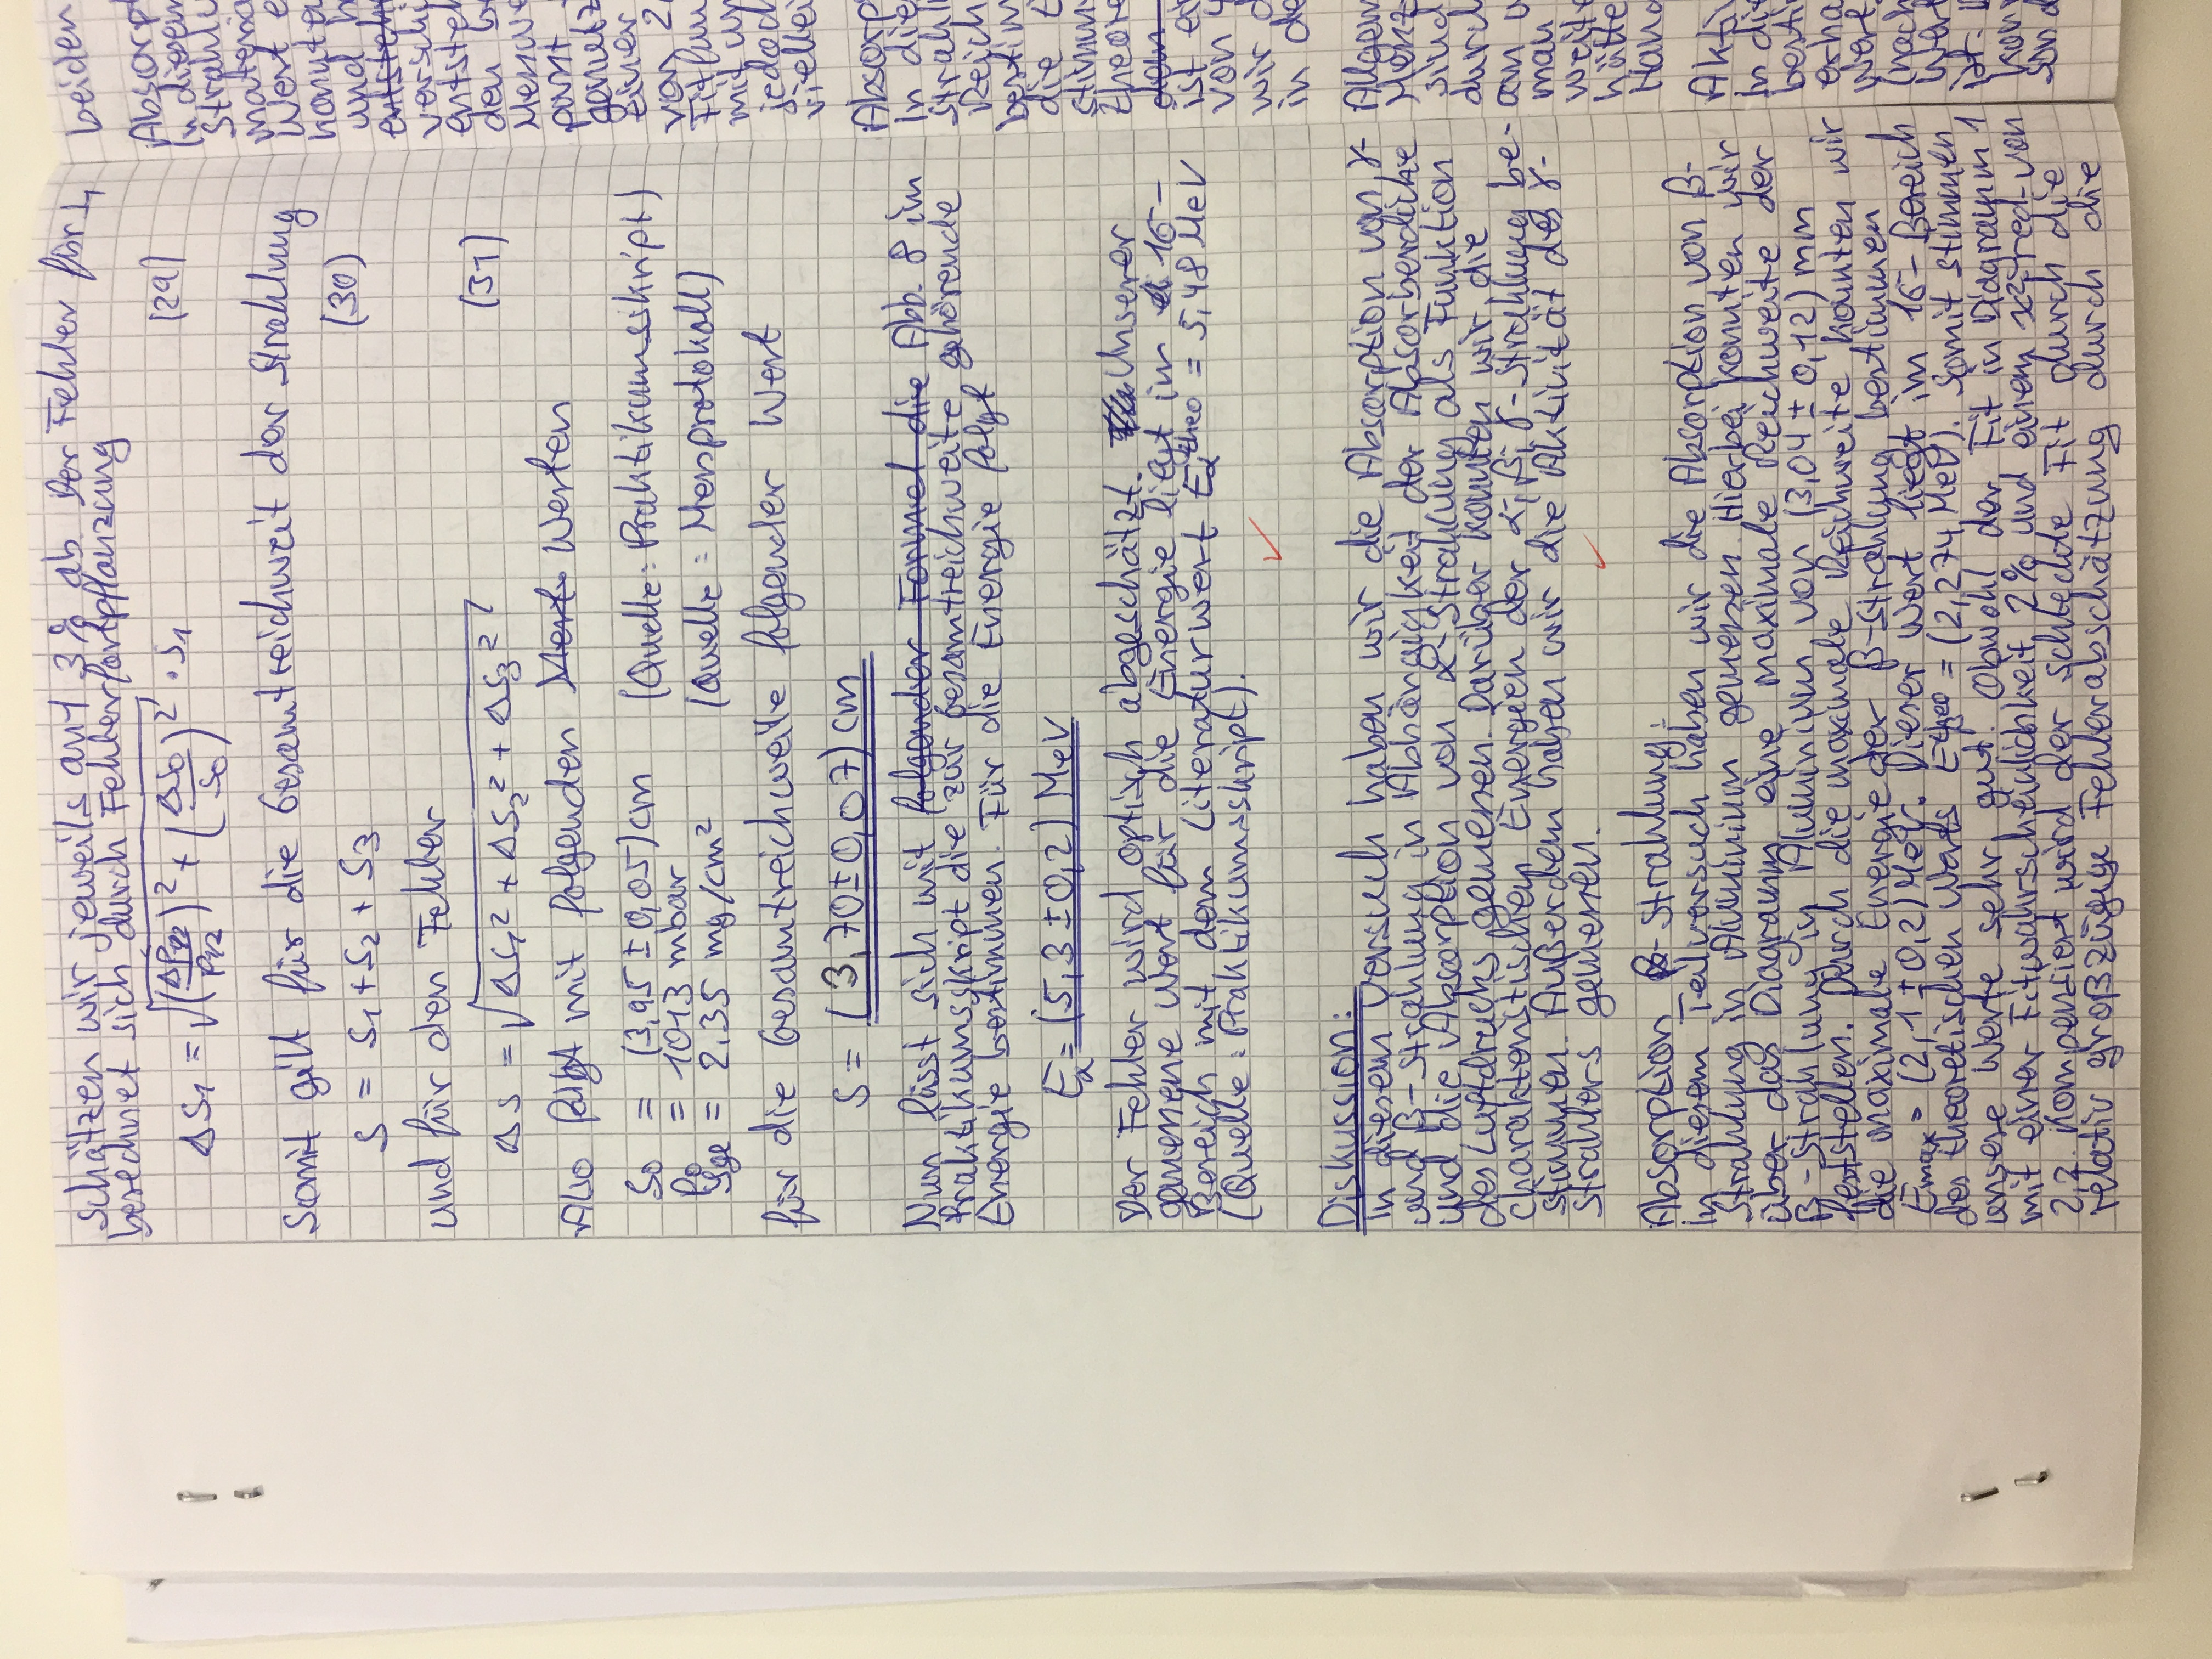 schätzen wir jeweils auf 3% ab. Der Fehler für s₁
berechnet sich durch Fehlerfortpflanzung
Δs₁ = √((Δp₁/₂/p₁/₂)² + (Δs₀/s₀)²) · s₁ (29)
Somit gilt für die Gesamtreichweit der Strahlung
s = s₁ + s₂ + s₃ (30)
und für den Fehler
Δs = √(Δs₁² + Δs₂² + Δs₃²) (31)
Also folgt mit folgenden Werten
s₀ = (3,95 ± 0,05) cm (Quelle: Praktikumsskript)
p₀ = 1013 mbar
ρge = 2,35 mg/cm² (Quelle: Messprotokoll)
für die Gesamtreichweite folgender Wert
s = (3,70 ± 0,07) cm
Nun lässt sich mit folgender Formel die Abb. 8 im
Praktikumsskript die zur Gesamtreichweite gehörende
Energie bestimmen. Für die Energie folgt
Eα = (5,3 ± 0,2) MeV
Der Fehler wird optisch abgeschätzt. Unserer
gemessene Wert für die Energie liegt im 1σ-
Bereich mit dem Literaturwert Eα^theo = 5,48 MeV
(Quelle: Praktikumsskript).
Diskussion:
In diesem Versuch haben wir die Absorption von γ-
und β-Strahlung in Abhängigkeit der Absorberdicke
und die Absorption von α-Strahlung als Funktion
des Luftdrucks gemessen. Darüber konnten wir die
charakteristischen Energien der α, β, γ-Strahlung be-
stimmen. Außerdem haben wir die Aktivität des γ-
Strahlers gemessen.
Absorption β-Strahlung:
In diesem Teilversuch haben wir die Absorption von β-
Strahlung in Aluminium gemessen. Hierbei konnten wir
über das Diagramm eine maximale Reichweite der
β-Strahlung in Aluminium von (3,04 ± 0,12) mm
feststellen. Durch die maximale Reichweite konnten wir
die maximale Energie der β-Strahlung bestimmen
Emax = (2,1 ± 0,2) MeV. Dieser Wert liegt im 1σ-Bereich
des theoretischen Werts Eβ^theo = (2,274 MeV). Somit stimmen
unsere Werte sehr gut. Obwohl der Fit in Diagramm 1
mit einer Fitwahrscheinlichkeit 2% und einem χ²-red-von
2,2. Kompensiert wird der schlechte Fit durch die
relativ großzügige Fehlerabschätzung durch die
beiden
In diesem
Wert
konnten
und
den
von
mit
jedoch
In die
die
ist
von
wir
in
sind
durch
man
hätte
In die